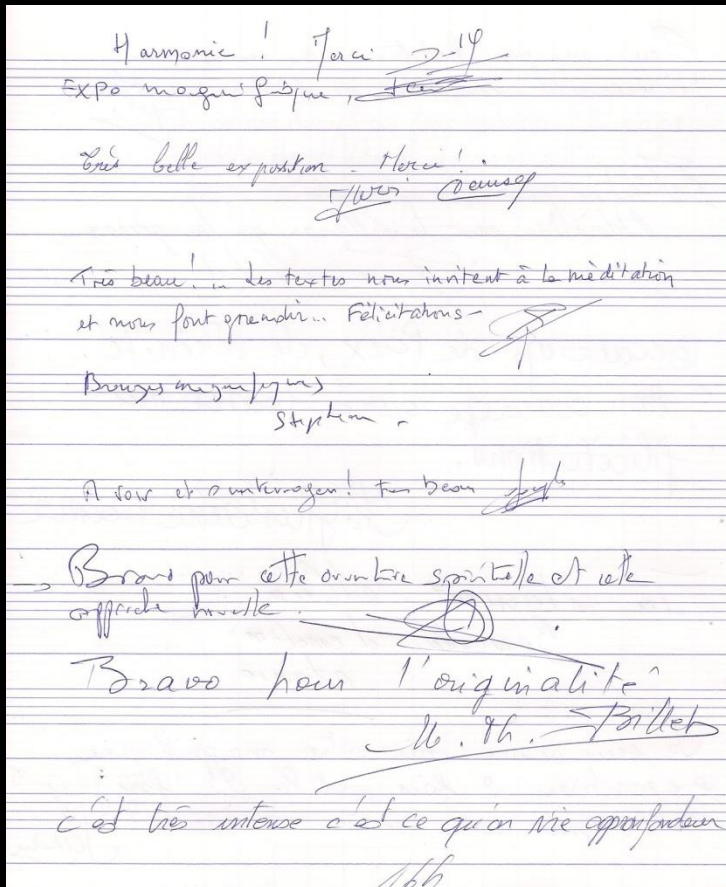 Harmonie ! Merci
Expo magnifique,
Très belle exposition - Merci !
Très beau ! .. Les textes nous invitent à la méditation
et nous font grandir... Félicitations -
Bronzes magnifiques
Stephan -
A voir et s'interroger ! très beau
→ Bravo pour cette ouverture spirituelle et cette
approche nouvelle.
Bravo pour l'originalité
M. Th. Billet
c'est très intense c'est ce qu'on